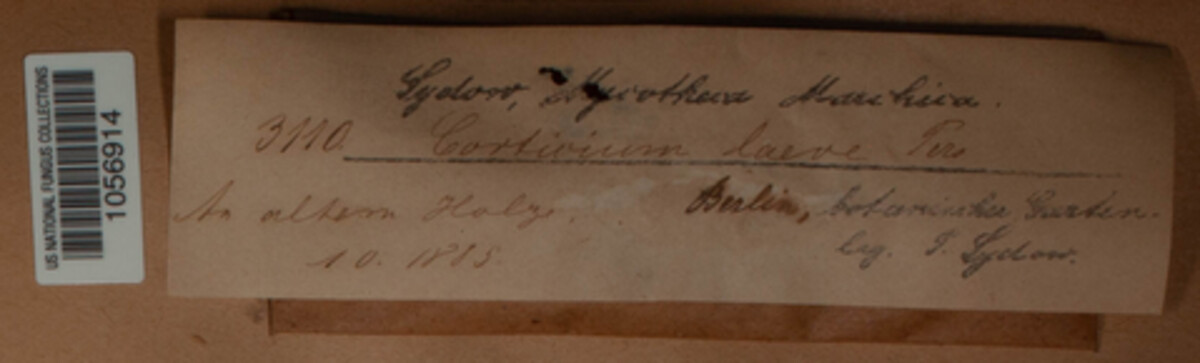 US NATIONAL FUNGUS COLLECTIONS
1056914
Sydow, Mycotheca Marchica.
3110. Corticium laeve Pers
An altem Holze.
Berlin, botanischer Garten.
10. 1885.
leg. P. Sydow.